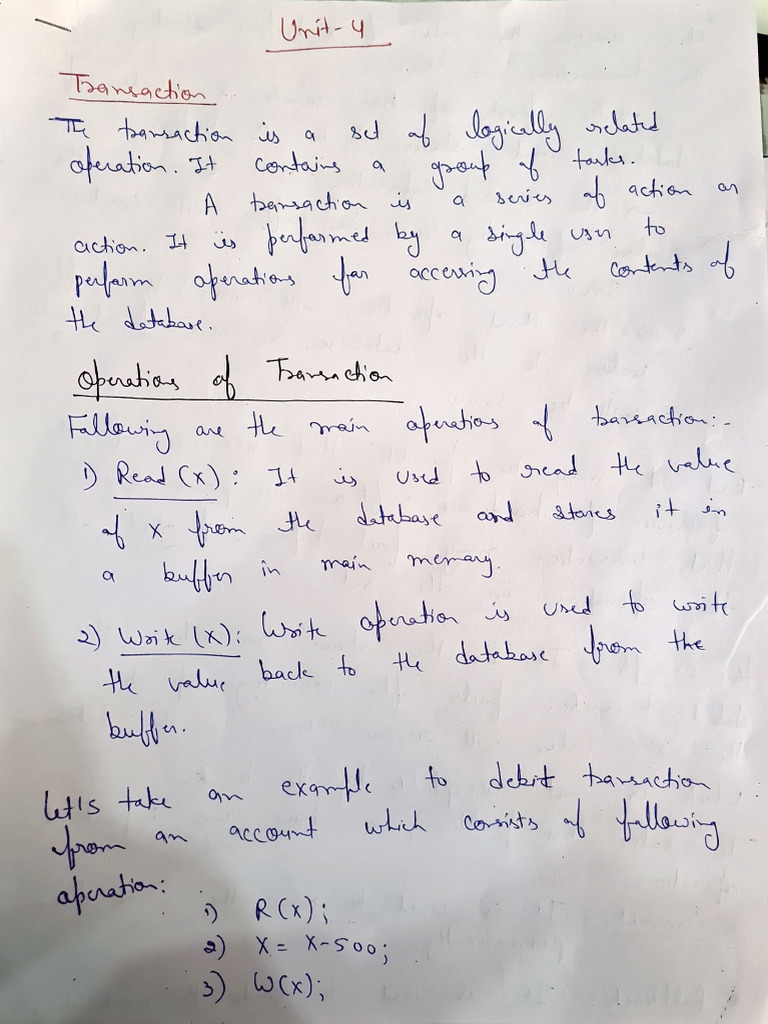 Unit-4
Transaction
The transaction is a set of logically related
operation. It contains a group of tasks.
A transaction is a series of action or
action. It is performed by a single user to
perform operations for accessing the contents of
the database.
Operations of Transaction
Following are the main operations of transaction:-
1) Read (X): It is used to read the value
of X from the database and stores it in
a buffer in main memory.
2) Write (X): Write operation is used to write
the value back to the database from the
buffer.
Let's take an example to debit transaction
from an account which consists of following
operation:
1) R(X);
2) X = X-500;
3) W(X);